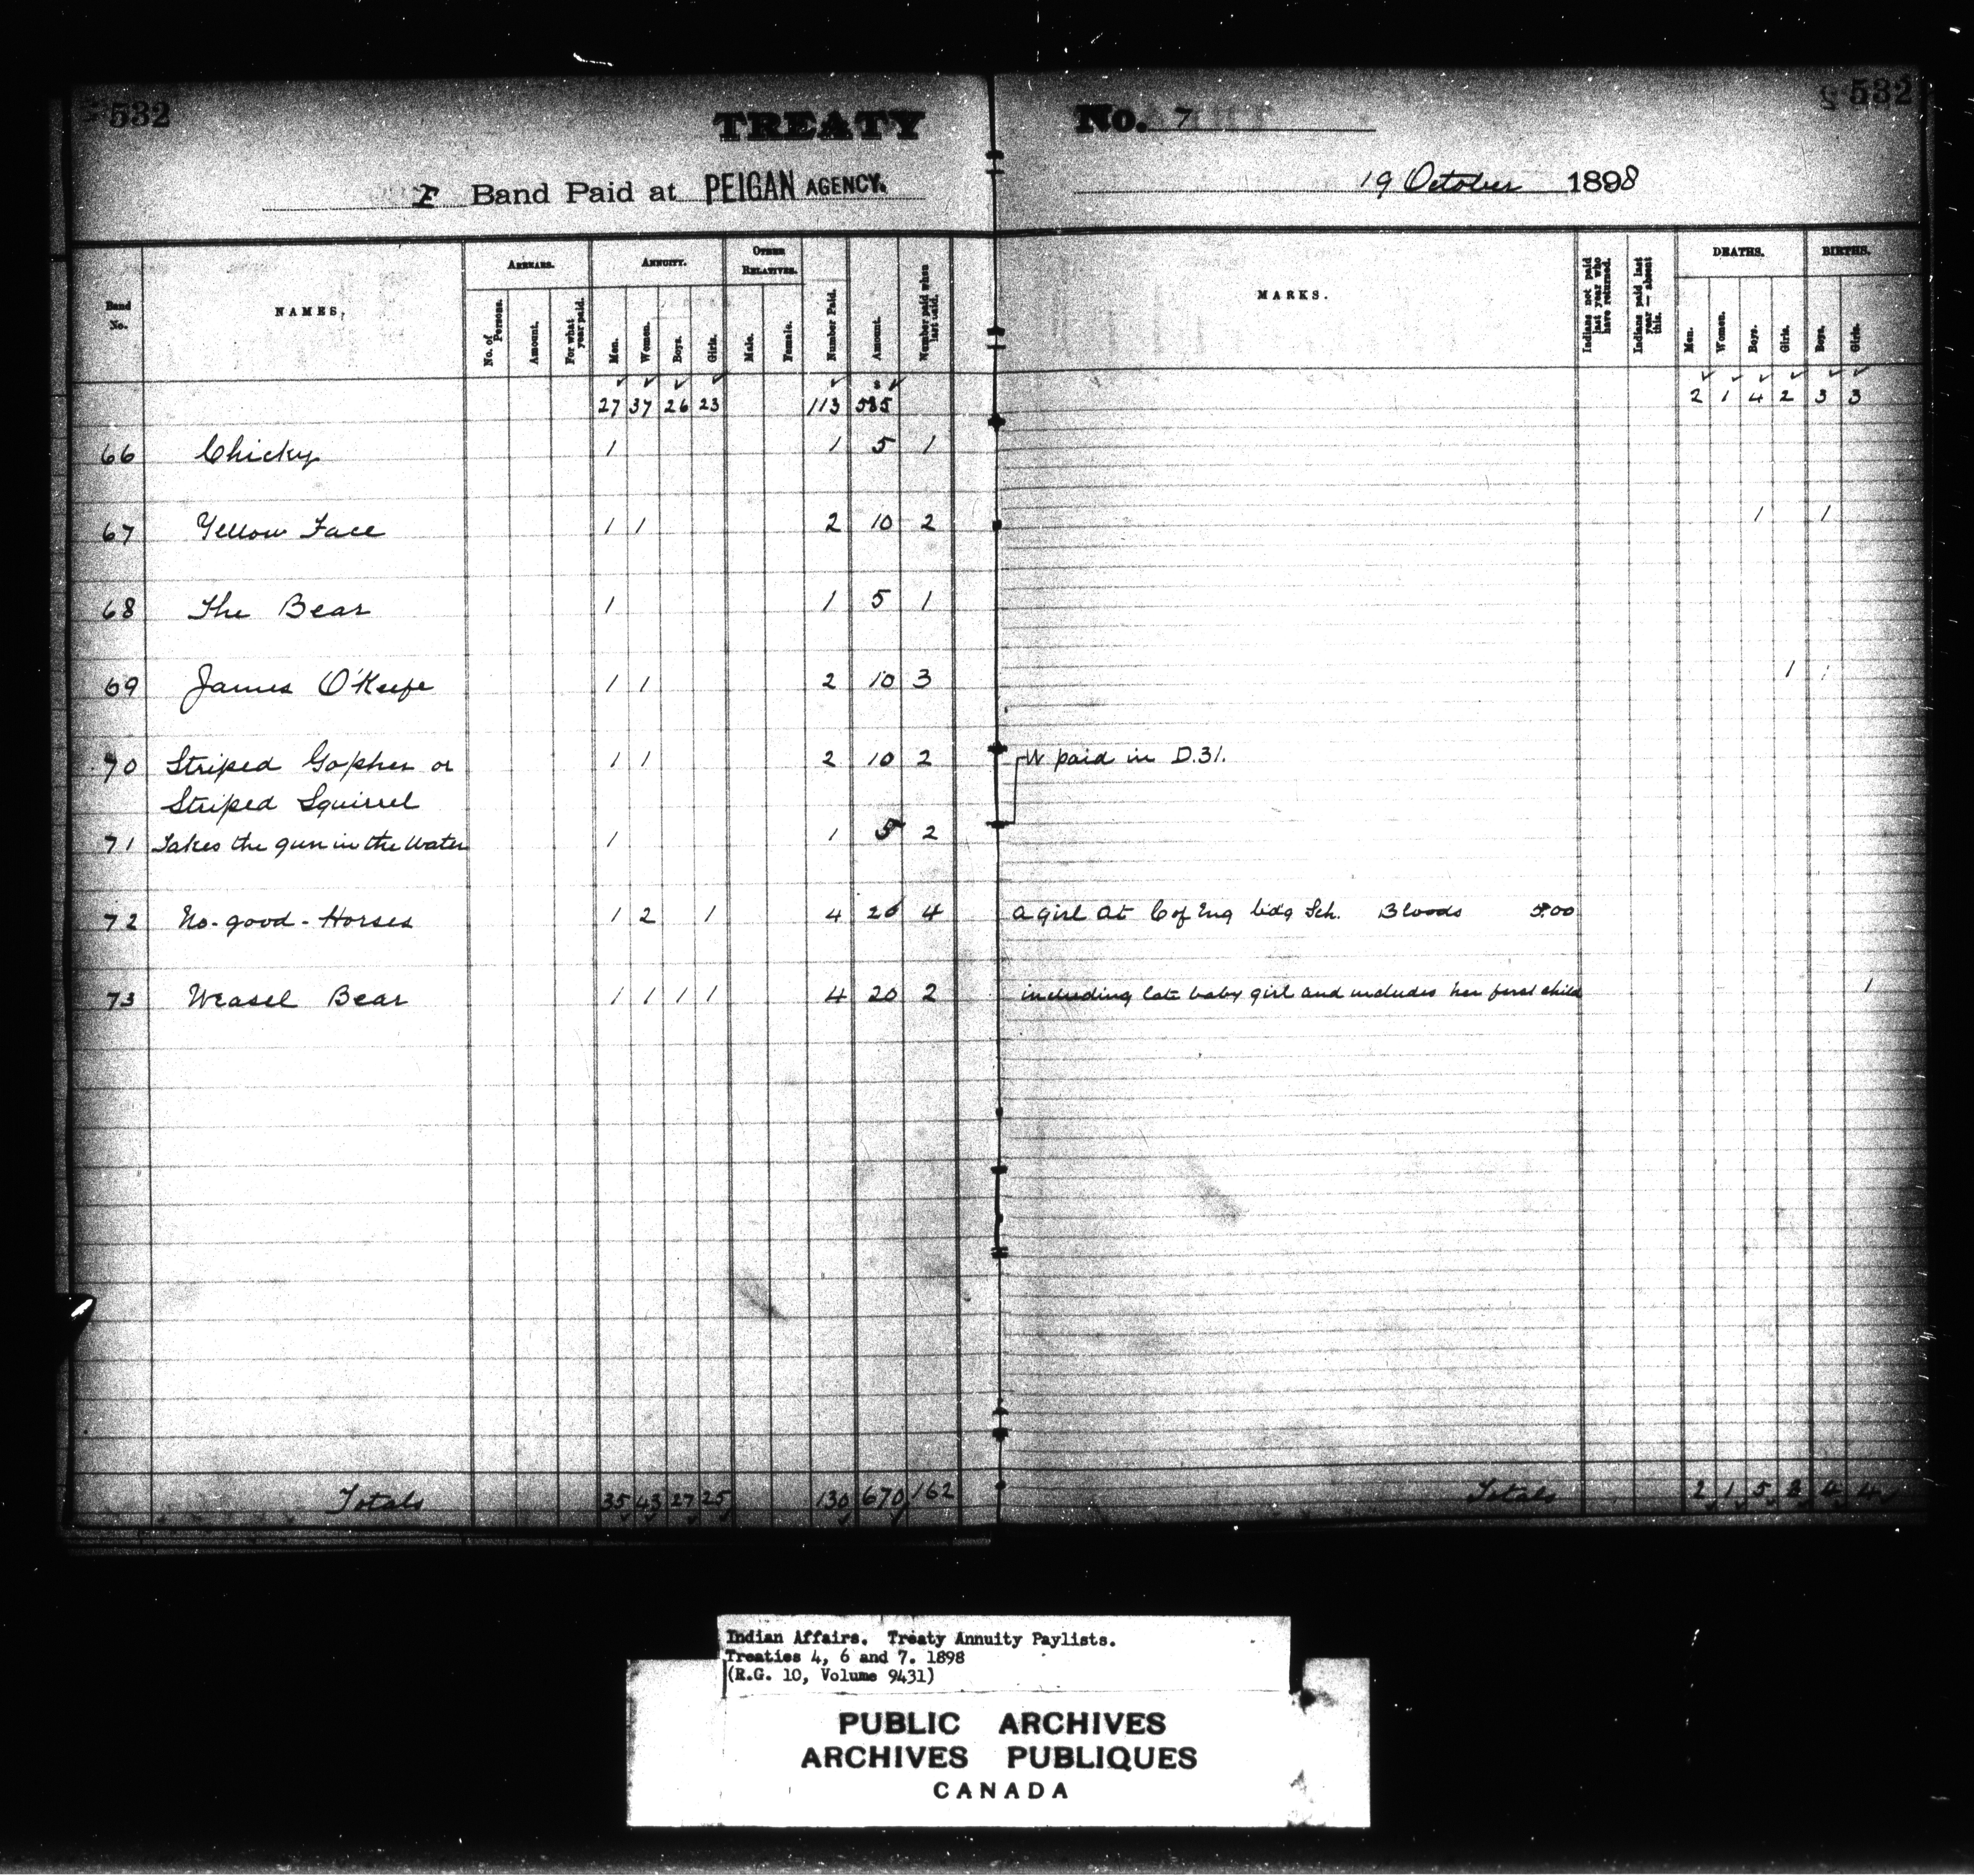 532
TREATY No. 7
532
F Band Paid at PEIGAN AGENCY. 19 October 1898
Band No.
NAMES.
ARREARS.
No. of Persons.
Amount.
For what year paid.
ANNUITY.
Men.
Women.
Boys.
Girls.
OTHER RELATIVES.
Male.
Female.
Number Paid.
Amount.
Number paid when last paid.
MARKS.
Indians not paid last year who have returned.
Indians paid last year — absent this.
DEATHS.
Men.
Women.
Boys.
Girls.
BIRTHS.
Boys.
Girls.
27 37 26 23 113 $ 585 2 1 4 2 3 3
66 Chicky 1 1 5 1
67 Yellow Face 1 1 2 10 2 1 1
68 The Bear 1 1 5 1
69 James O'Keefe 1 1 2 10 3 1 1
70 Striped Gopher or 1 1 2 10 2 W paid in D.31.
Striped Squirrel
71 Takes the gun in the Water 1 1 5 2
72 No-good-Horses 1 2 1 4 20 4 a girl at C of Eng bdg Sch. Bloods 5.00
73 Weasel Bear 1 1 1 1 4 20 2 including late baby girl and includes her first child 1
Totals 35 43 27 25 130 670 162 Totals 2 1 5 3 4 4
Indian Affairs. Treaty Annuity Paylists.
Treaties 4, 6 and 7. 1898
(R.G. 10, Volume 9431)
PUBLIC ARCHIVES
ARCHIVES PUBLIQUES
CANADA